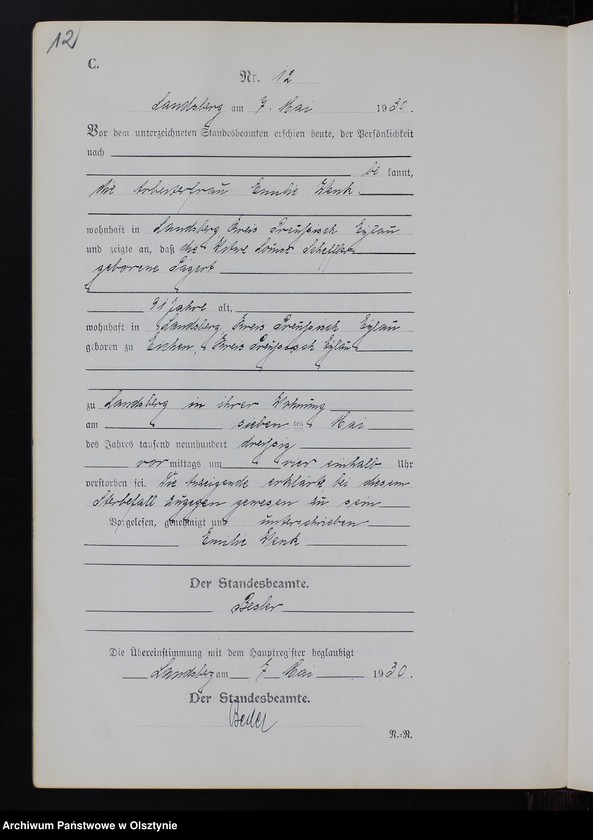 12
C.
Nr. 12
Landsberg am 7. Mai 1930.
Vor dem unterzeichneten Standesbeamten erschien heute, der Persönlichkeit
nach
be kannt,
die Arbeiterfrau Emilie Wenk
wohnhaft in Landsberg, Kreis Preußisch Eylau
und zeigte an, daß die Witwe Louise
geborene
91 Jahre alt,
wohnhaft in Landsberg, Kreis Preußisch Eylau
geboren zu Eichen, Kreis Preußisch Eylau
zu Landsberg in ihrer Wohnung
am sieben ten Mai
des Jahres tausend neunhundert dreissig
vor mittags um vier einhalb Uhr
verstorben sei. Die Anzeigende erklärte bei diesem
Sterbefall zugegen gewesen zu sein
Vorgelesen, genehmigt und unterschrieben
Emilie Wenk
Der Standesbeamte.
Besler
Die Übereinstimmung mit dem Hauptregister beglaubigt
Landsberg am 7. Mai 1930.
Der Standesbeamte.
Besler
R.-R.
Archiwum Państwowe w Olsztynie